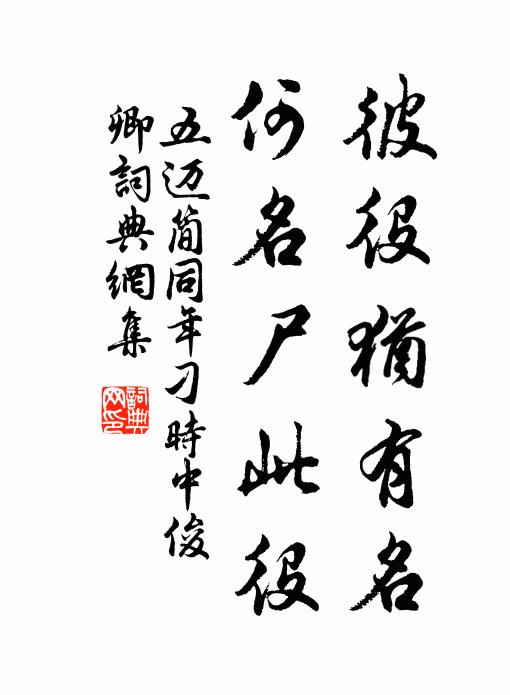 彼役猶有名
何名尸此役
五迈简同年刁時中俊
卿詞典網集
詞典
网印